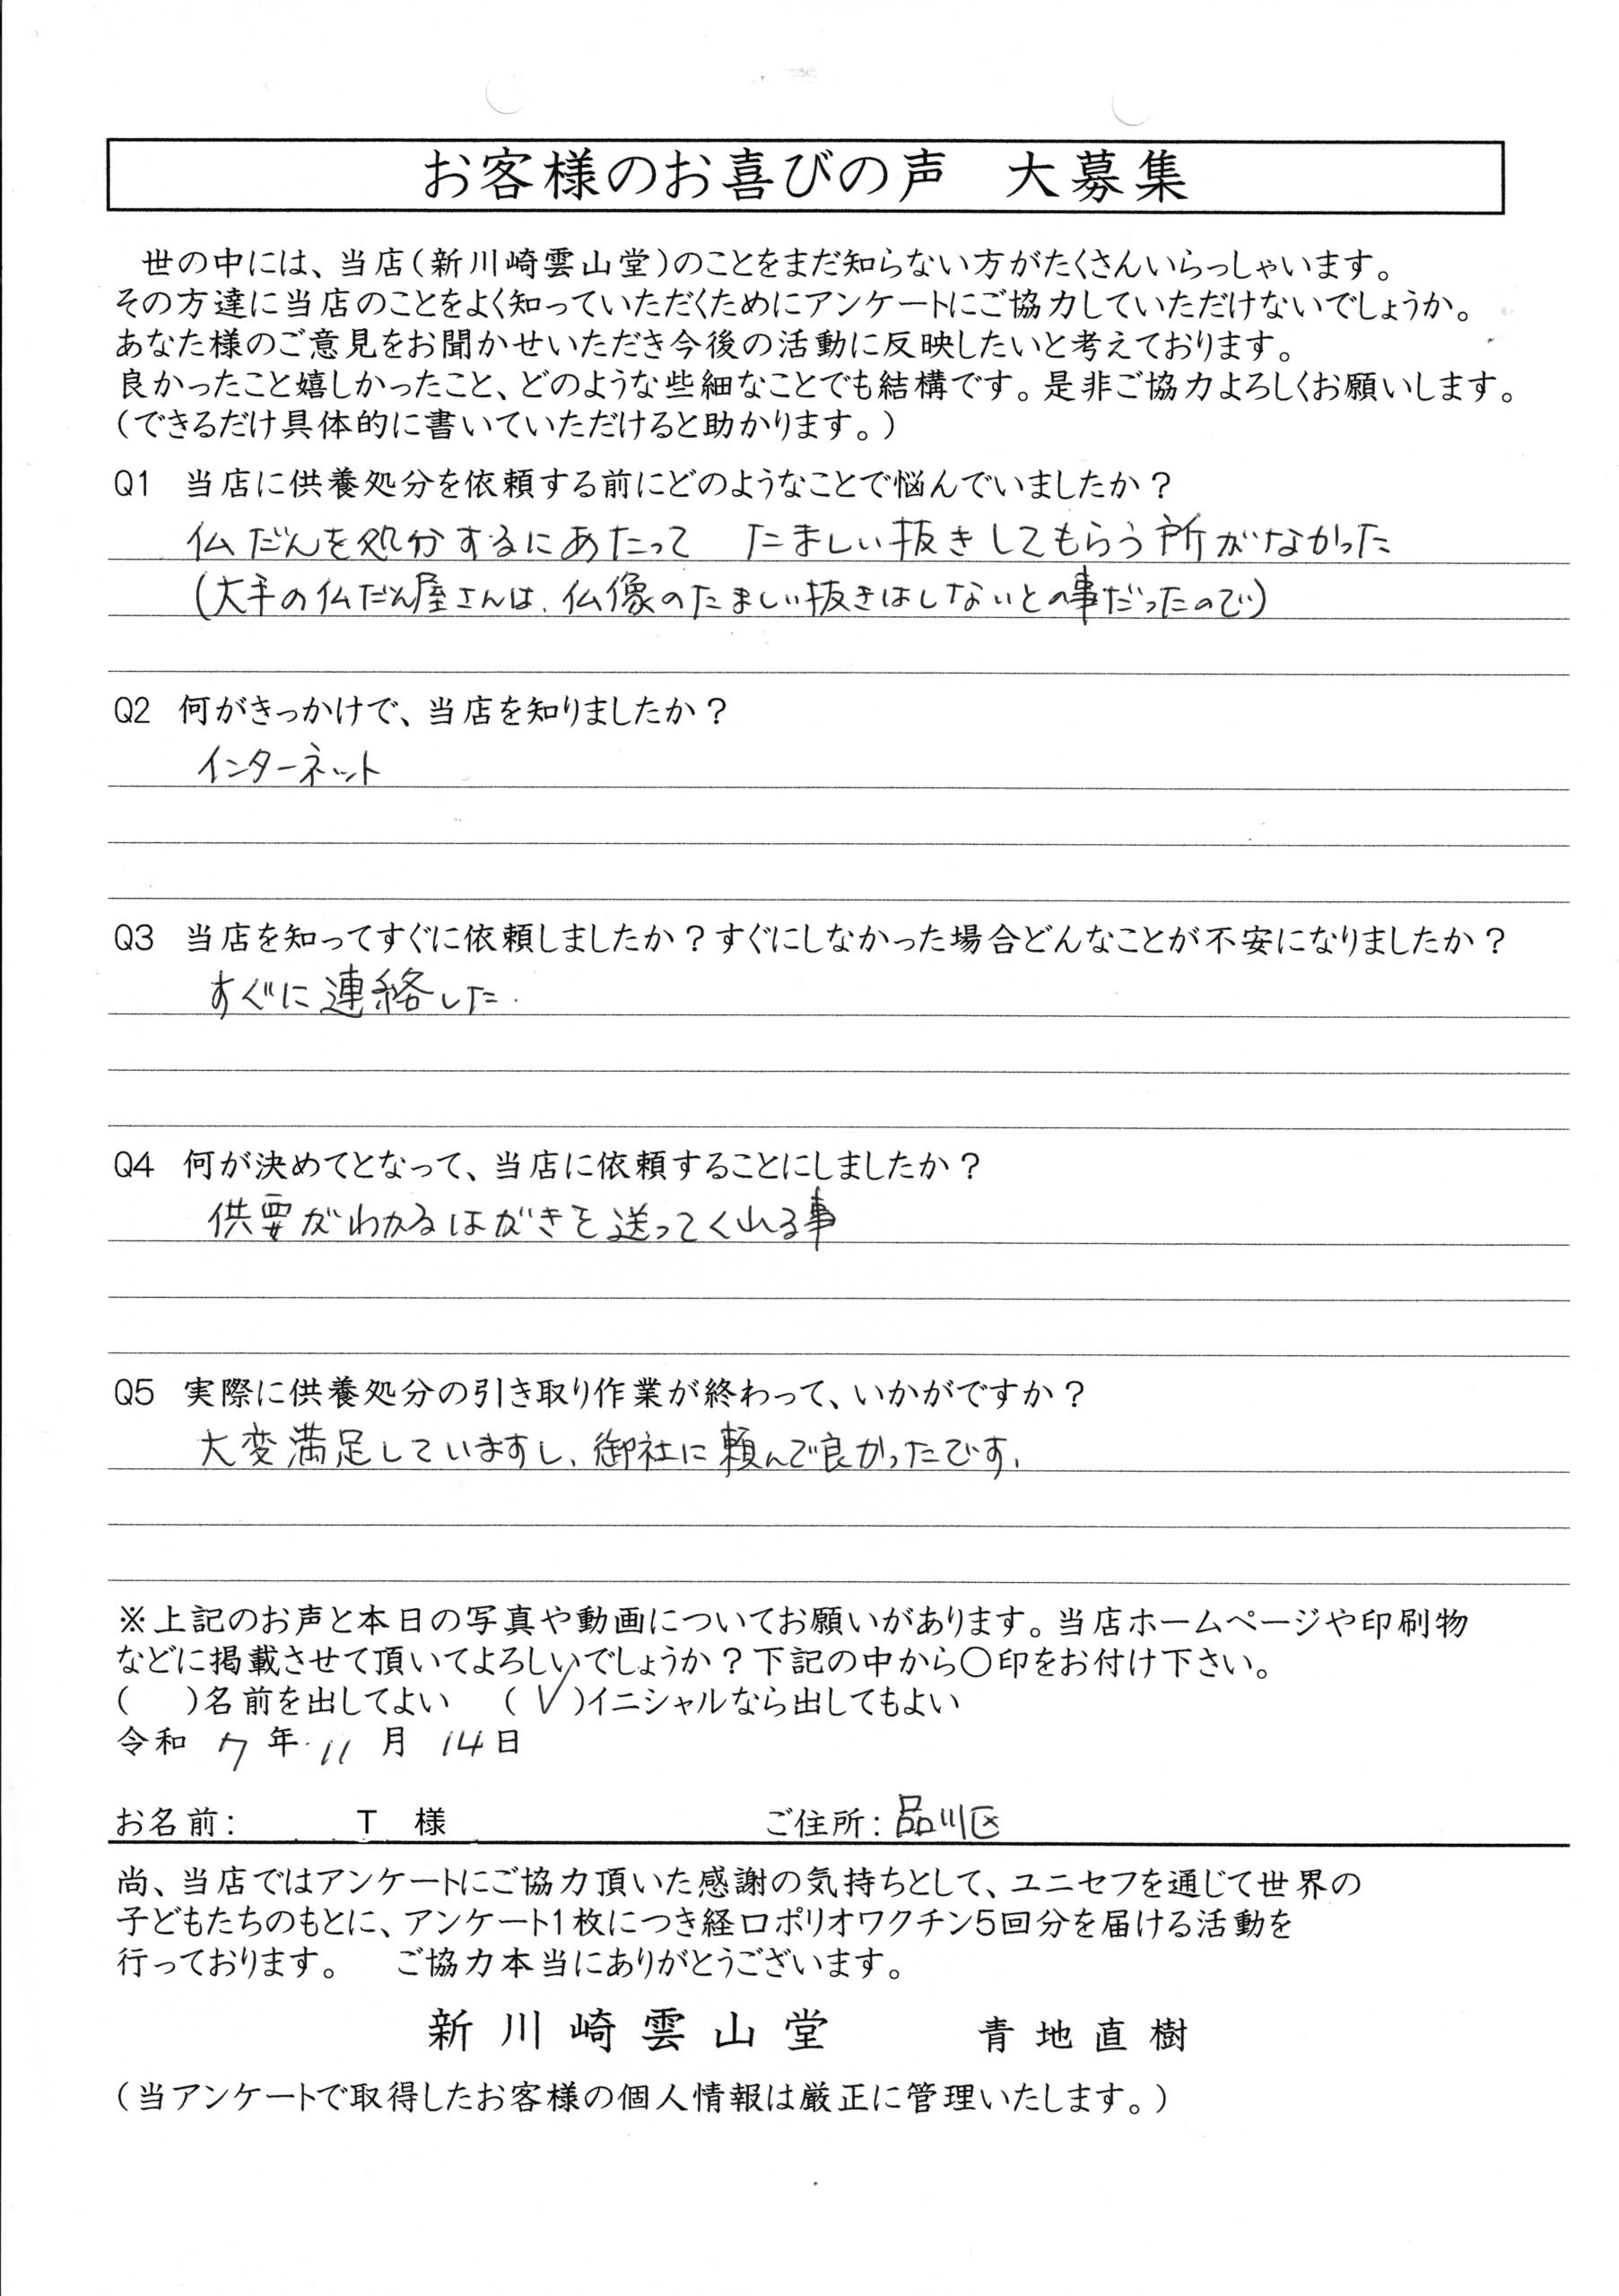 お客様のお喜びの声　大募集
世の中には、当店（新川崎雲山堂）のことをまだ知らない方がたくさんいらっしゃいます。
その方達に当店のことをよく知っていただくためにアンケートにご協力していただけないでしょうか。
あなた様のご意見をお聞かせいただき今後の活動に反映したいと考えております。
良かったこと嬉しかったこと、どのような些細なことでも結構です。是非ご協力よろしくお願いします。
（できるだけ具体的に書いていただけると助かります。）
Q1　当店に供養処分を依頼する前にどのようなことで悩んでいましたか？
仏だんを処分するにあたって　たましい抜きしてもらう所がなかった
(大手の仏だん屋さんは、仏像のたましい抜きはしないとの事だったので)
Q2　何がきっかけで、当店を知りましたか？
インターネット
Q3　当店を知ってすぐに依頼しましたか？すぐにしなかった場合どんなことが不安になりましたか？
すぐに連絡した.
Q4　何が決めてとなって、当店に依頼することにしましたか？
供要がわかるはがきを送ってくれる事
Q5　実際に供養処分の引き取り作業が終わって、いかがですか？
大変満足していますし、御社に頼んで良かったです。
※上記のお声と本日の写真や動画についてお願いがあります。当店ホームページや印刷物
などに掲載させて頂いてよろしいでしょうか？下記の中から〇印をお付け下さい。
(　　)名前を出してよい　　(　✓　)イニシャルなら出してもよい
令和　7　年　11　月　14日
お名前：　　　T　様　　　　　　　ご住所：品川区
尚、当店ではアンケートにご協力頂いた感謝の気持ちとして、ユニセフを通じて世界の
子どもたちのもとに、アンケート1枚につき経口ポリオワクチン5回分を届ける活動を
行っております。　ご協力本当にありがとうございます。
新川崎雲山堂　　　青地直樹
（当アンケートで取得したお客様の個人情報は厳正に管理いたします。）